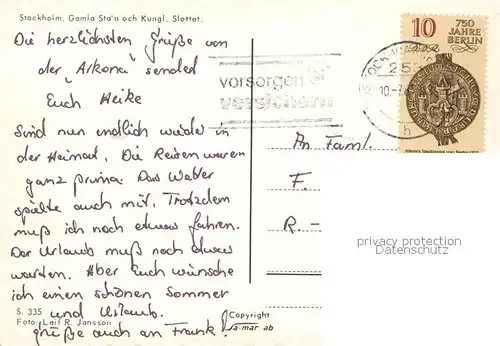 Stockholm. Gamla Sta'n och Kungl. Slottet.
Die herzlichsten Grüße von
der "Arkona" sendet
Euch Heike
Sind nun endlich wieder in
der Heimat. Die Reisen waren
ganz prima. Das Wetter
spielte auch mit. Trotzdem
muß ich noch etwas fahren.
Der Urlaub muß noch etwas
warten. Aber Euch wünsche
ich einen schönen Sommer
und Urlaub.
Grüße auch an Frank!
S. 335
Foto: Leif R. Jansson
Copyright
Sa-mär ab
vorsorgen
versichern
10
750
JAHRE
BERLIN
DDR
An Faml.
F.
R.-
privacy protection
watermark